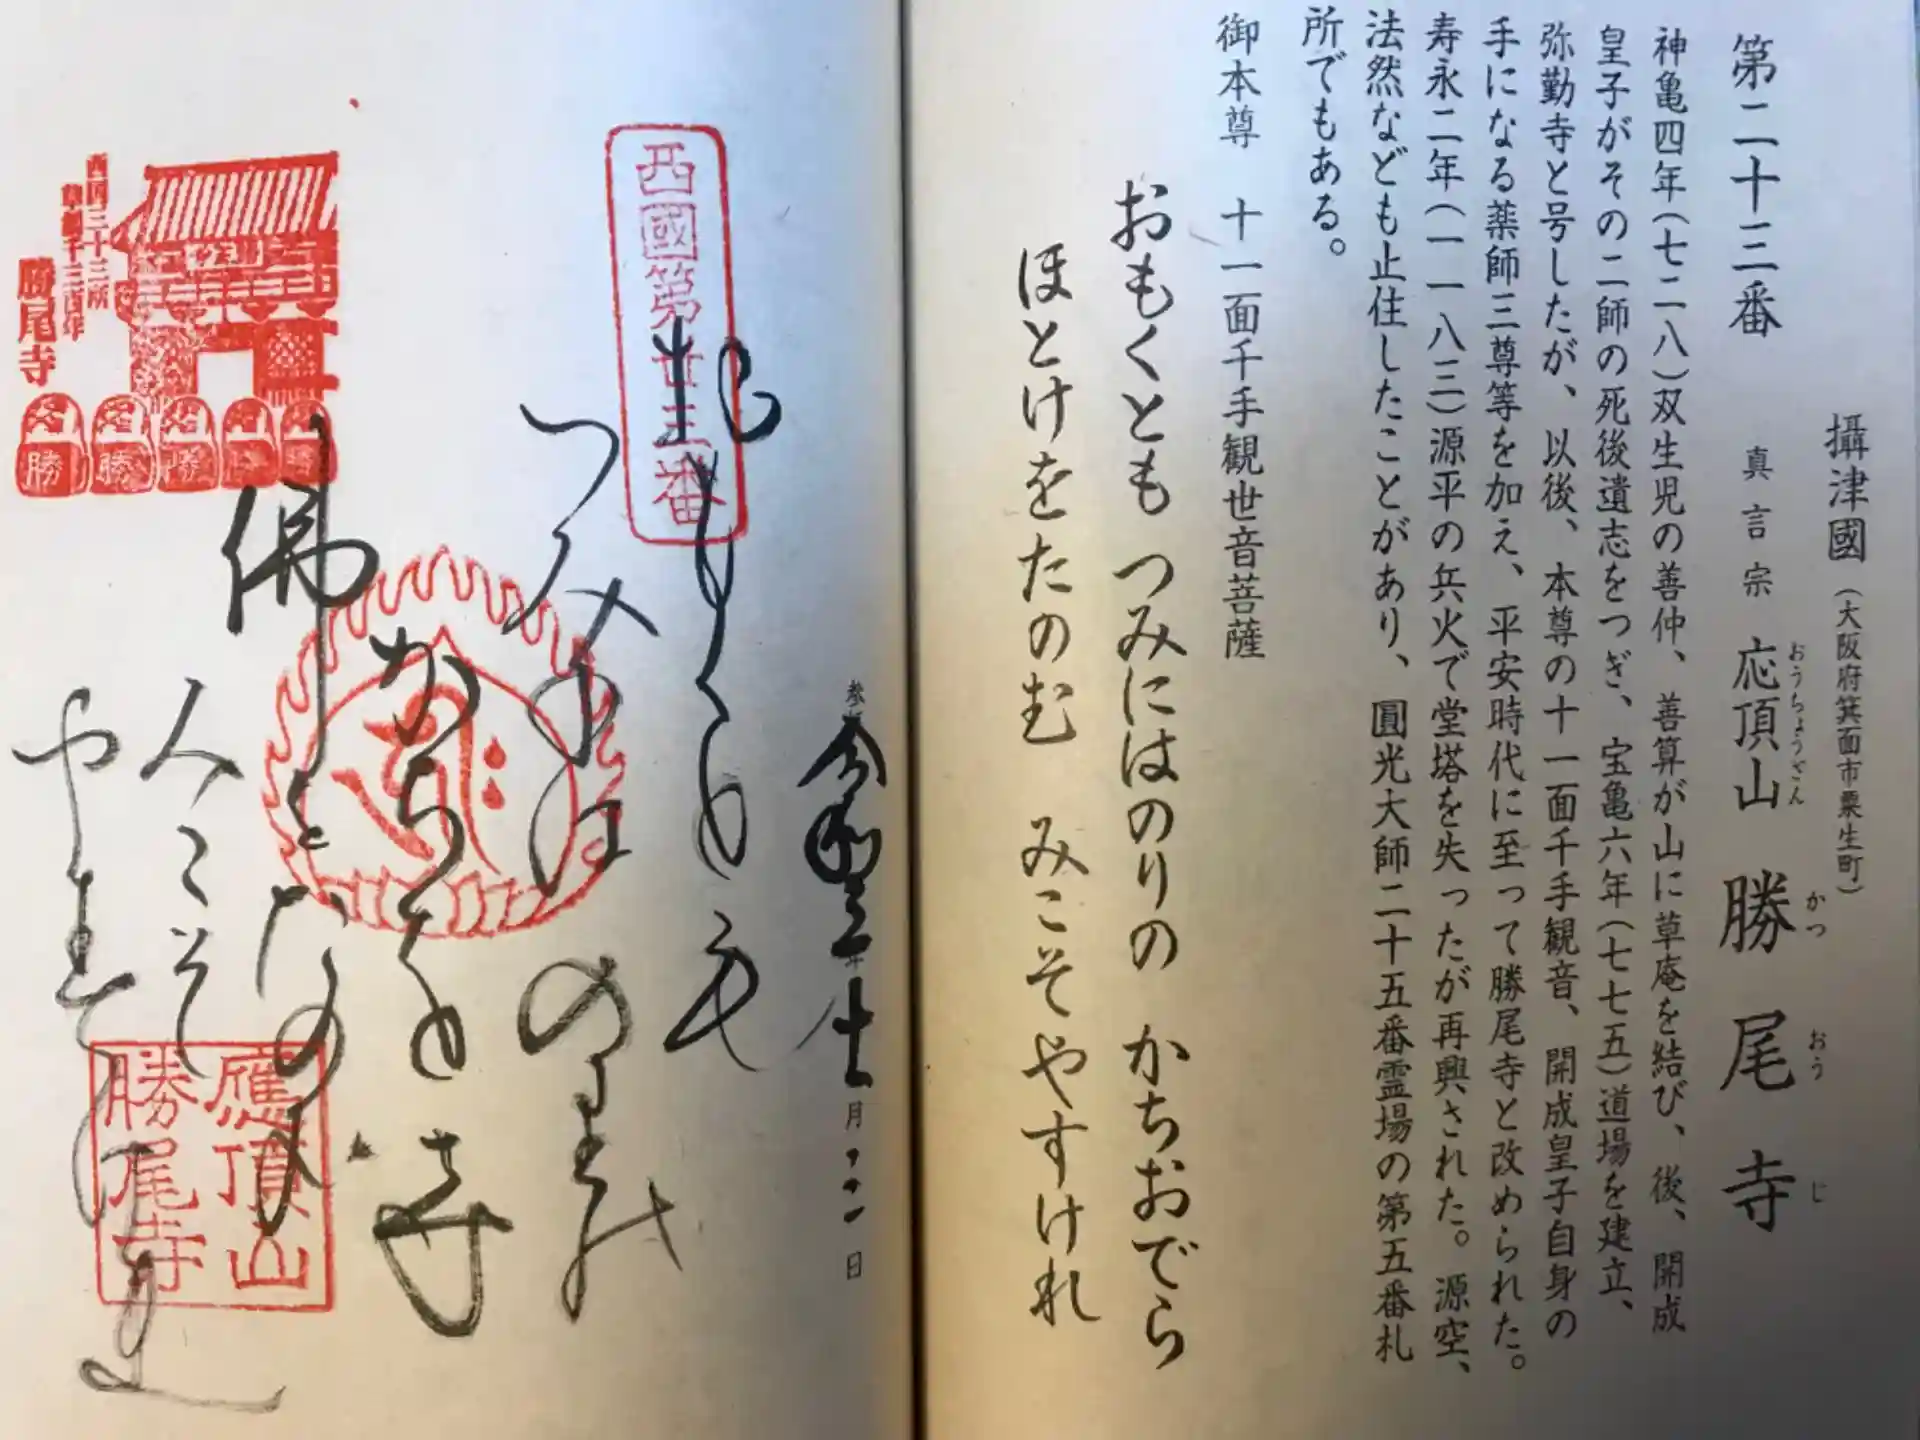 攝津國（大阪府箕面市粟生町）
第二十三番　真言宗　応頂山　勝尾寺
おうちょうざん　かつ　おう　じ
神亀四年（七二八）双生児の善仲、善算が山に草庵を結び、後、開成
皇子がその二師の死後遺志をつぎ、宝亀六年（七七五）道場を建立、
弥勤寺と号したが、以後、本尊の十一面千手観音、開成皇子自身の
手になる薬師三尊等を加え、平安時代に至って勝尾寺と改められた。
寿永二年（一一八三）源平の兵火で堂塔を失ったが再興された。源空、
法然なども止住したことがあり、圓光大師二十五番霊場の第五番札
所でもある。
御本尊　十一面千手観世音菩薩
おもくとも　つみにはのりの　かちおでら
ほとけをたのむ　みこそやすけれ
月二日
西國第廿三番
つみには
のりの
かちを
寺
佛
人こそ
やす
西国三十三所
草創千三百年
勝尾寺
勝
勝
勝
勝
勝
應頂山
勝尾寺